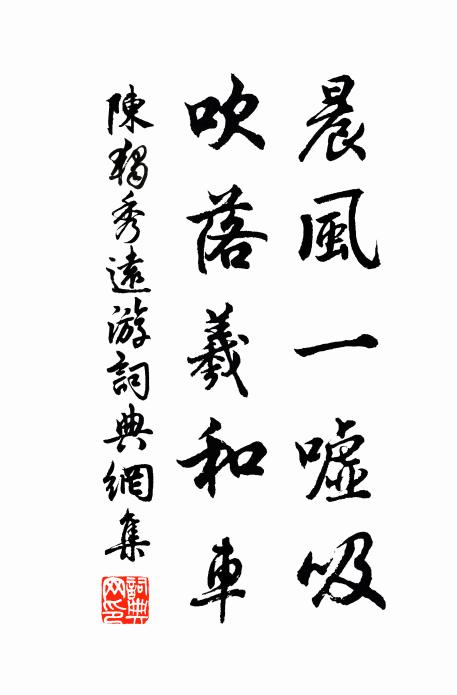 晨風一噓吸
吹落羲和車
陳獨秀遠游詞典網集
詞典網印